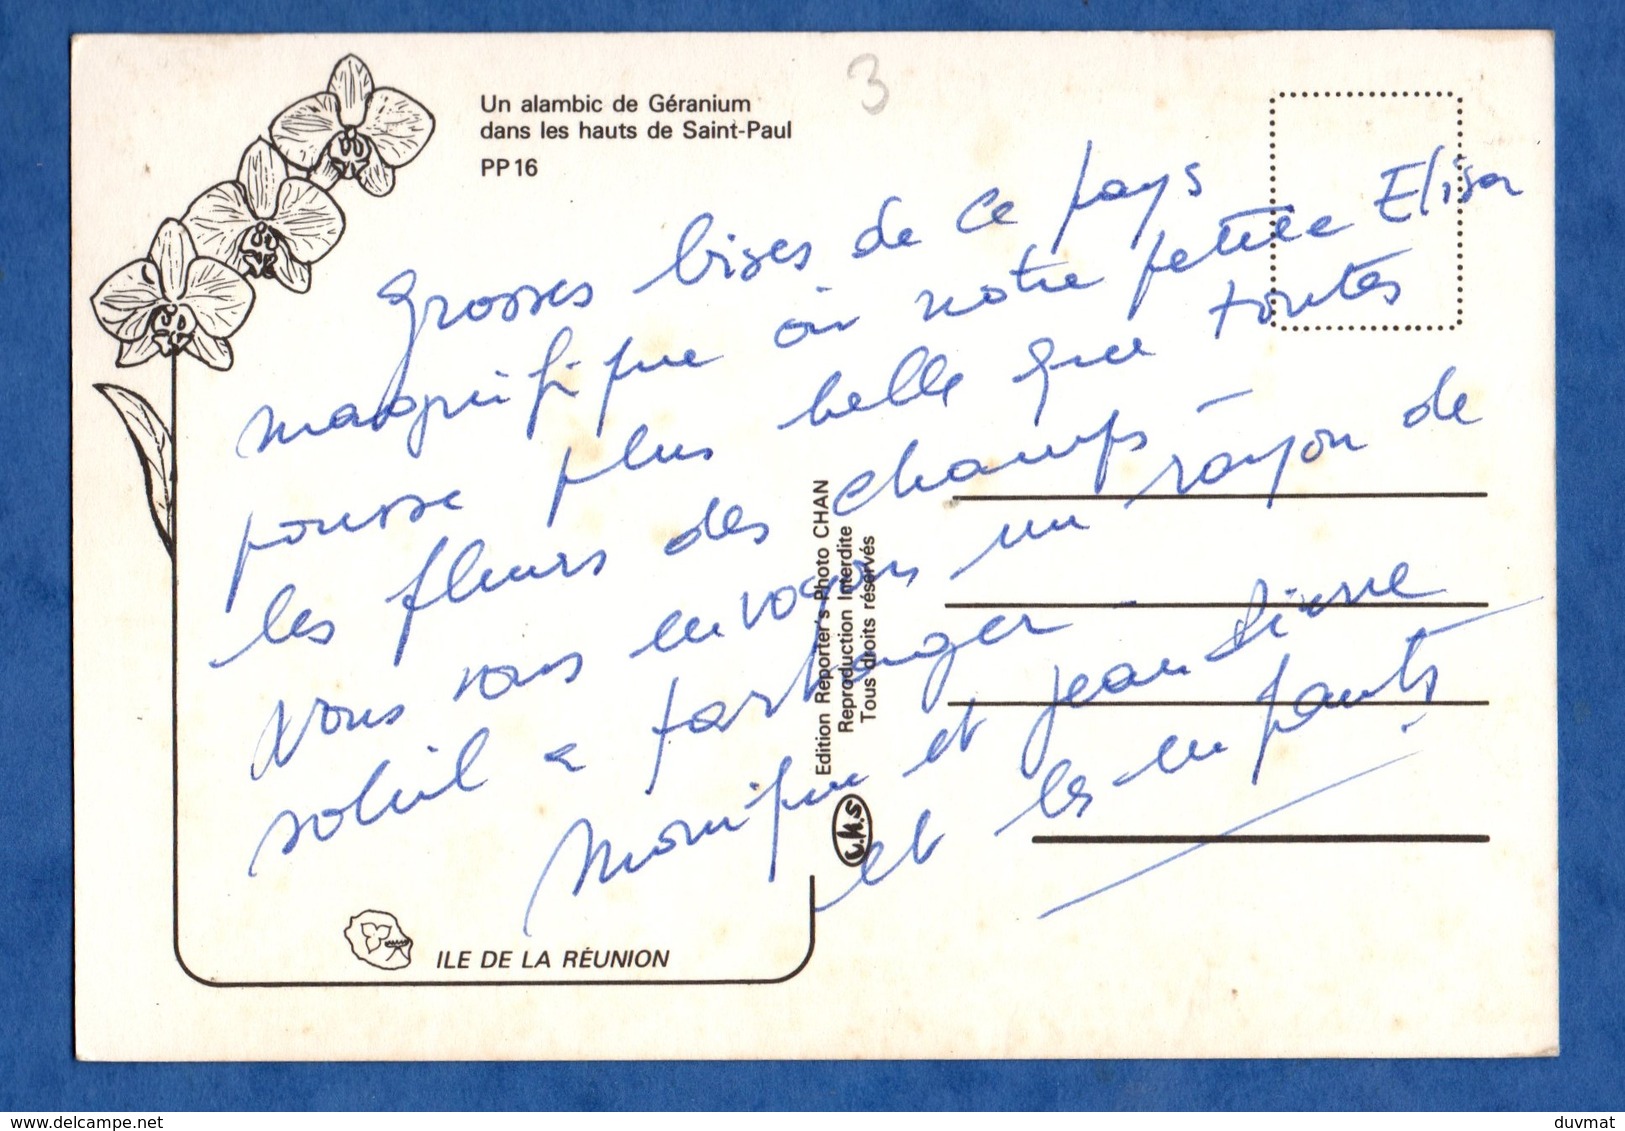 Un alambic de Géranium
dans les hauts de Saint-Paul
PP 16
3
Grosses bises de ce pays
magnifique où notre petite Elisa
pousse plus belle que toutes
les fleurs des champs -
Nous vous envoyons un rayon de
soleil à partager -
Monique et Jean Pierre
et les enfants
Edition Reporter's Photo CHAN
Reproduction Interdite
Tous droits réservés
v.h.s
ILE DE LA RÉUNION
duvmat